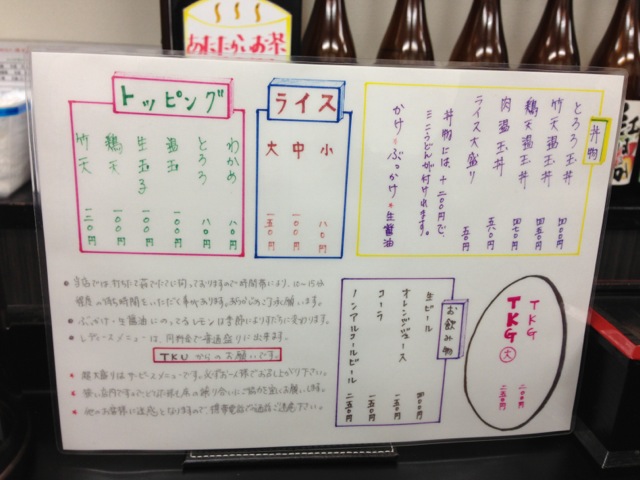 あたたかいお茶
トッピング
わかめ 八〇円
とろろ 八〇円
温玉 一〇〇円
生玉子 一〇〇円
鶏天 一〇〇円
竹天 一二〇円
ライス
小 八〇円
中 一〇〇円
大 一五〇円
丼物
とろろ玉丼 三〇〇円
竹天玉丼 四五〇円
鶏天玉丼 四五〇円
肉温玉丼 五八〇円
ライス大盛り 五〇円
丼物には、+二〇〇円で、
ミニうどんが付けれます。
かけ・ぶっかけ・生醤油
● 当店では打ちたて茹でたてに伺っておりますので時間帯により、10〜15分
程度の待ち時間をいただく事があります。あらかじめご了承願います。
● ぶっかけ・生醤油にのってるレモンは季節によりすだちに変わります。
● レディースメニューは、同料金で普通盛りに出来ます。
TKUからのお願いです。
★ 超大盛りはサービスメニューです。必ずお一人様でお召し上がり下さい。
★ 狭い店内ですのでお席の譲り合いにご協力をお願いします。
★ 他のお客様に迷惑となりますので、携帯電話での通話ご遠慮下さい。
お飲み物
生ビール 四〇〇円
オレンジジュース 一五〇円
コーラ 一五〇円
ノンアルコールビール 二五〇円
TKG 二〇〇円
TKG 大 二五〇円